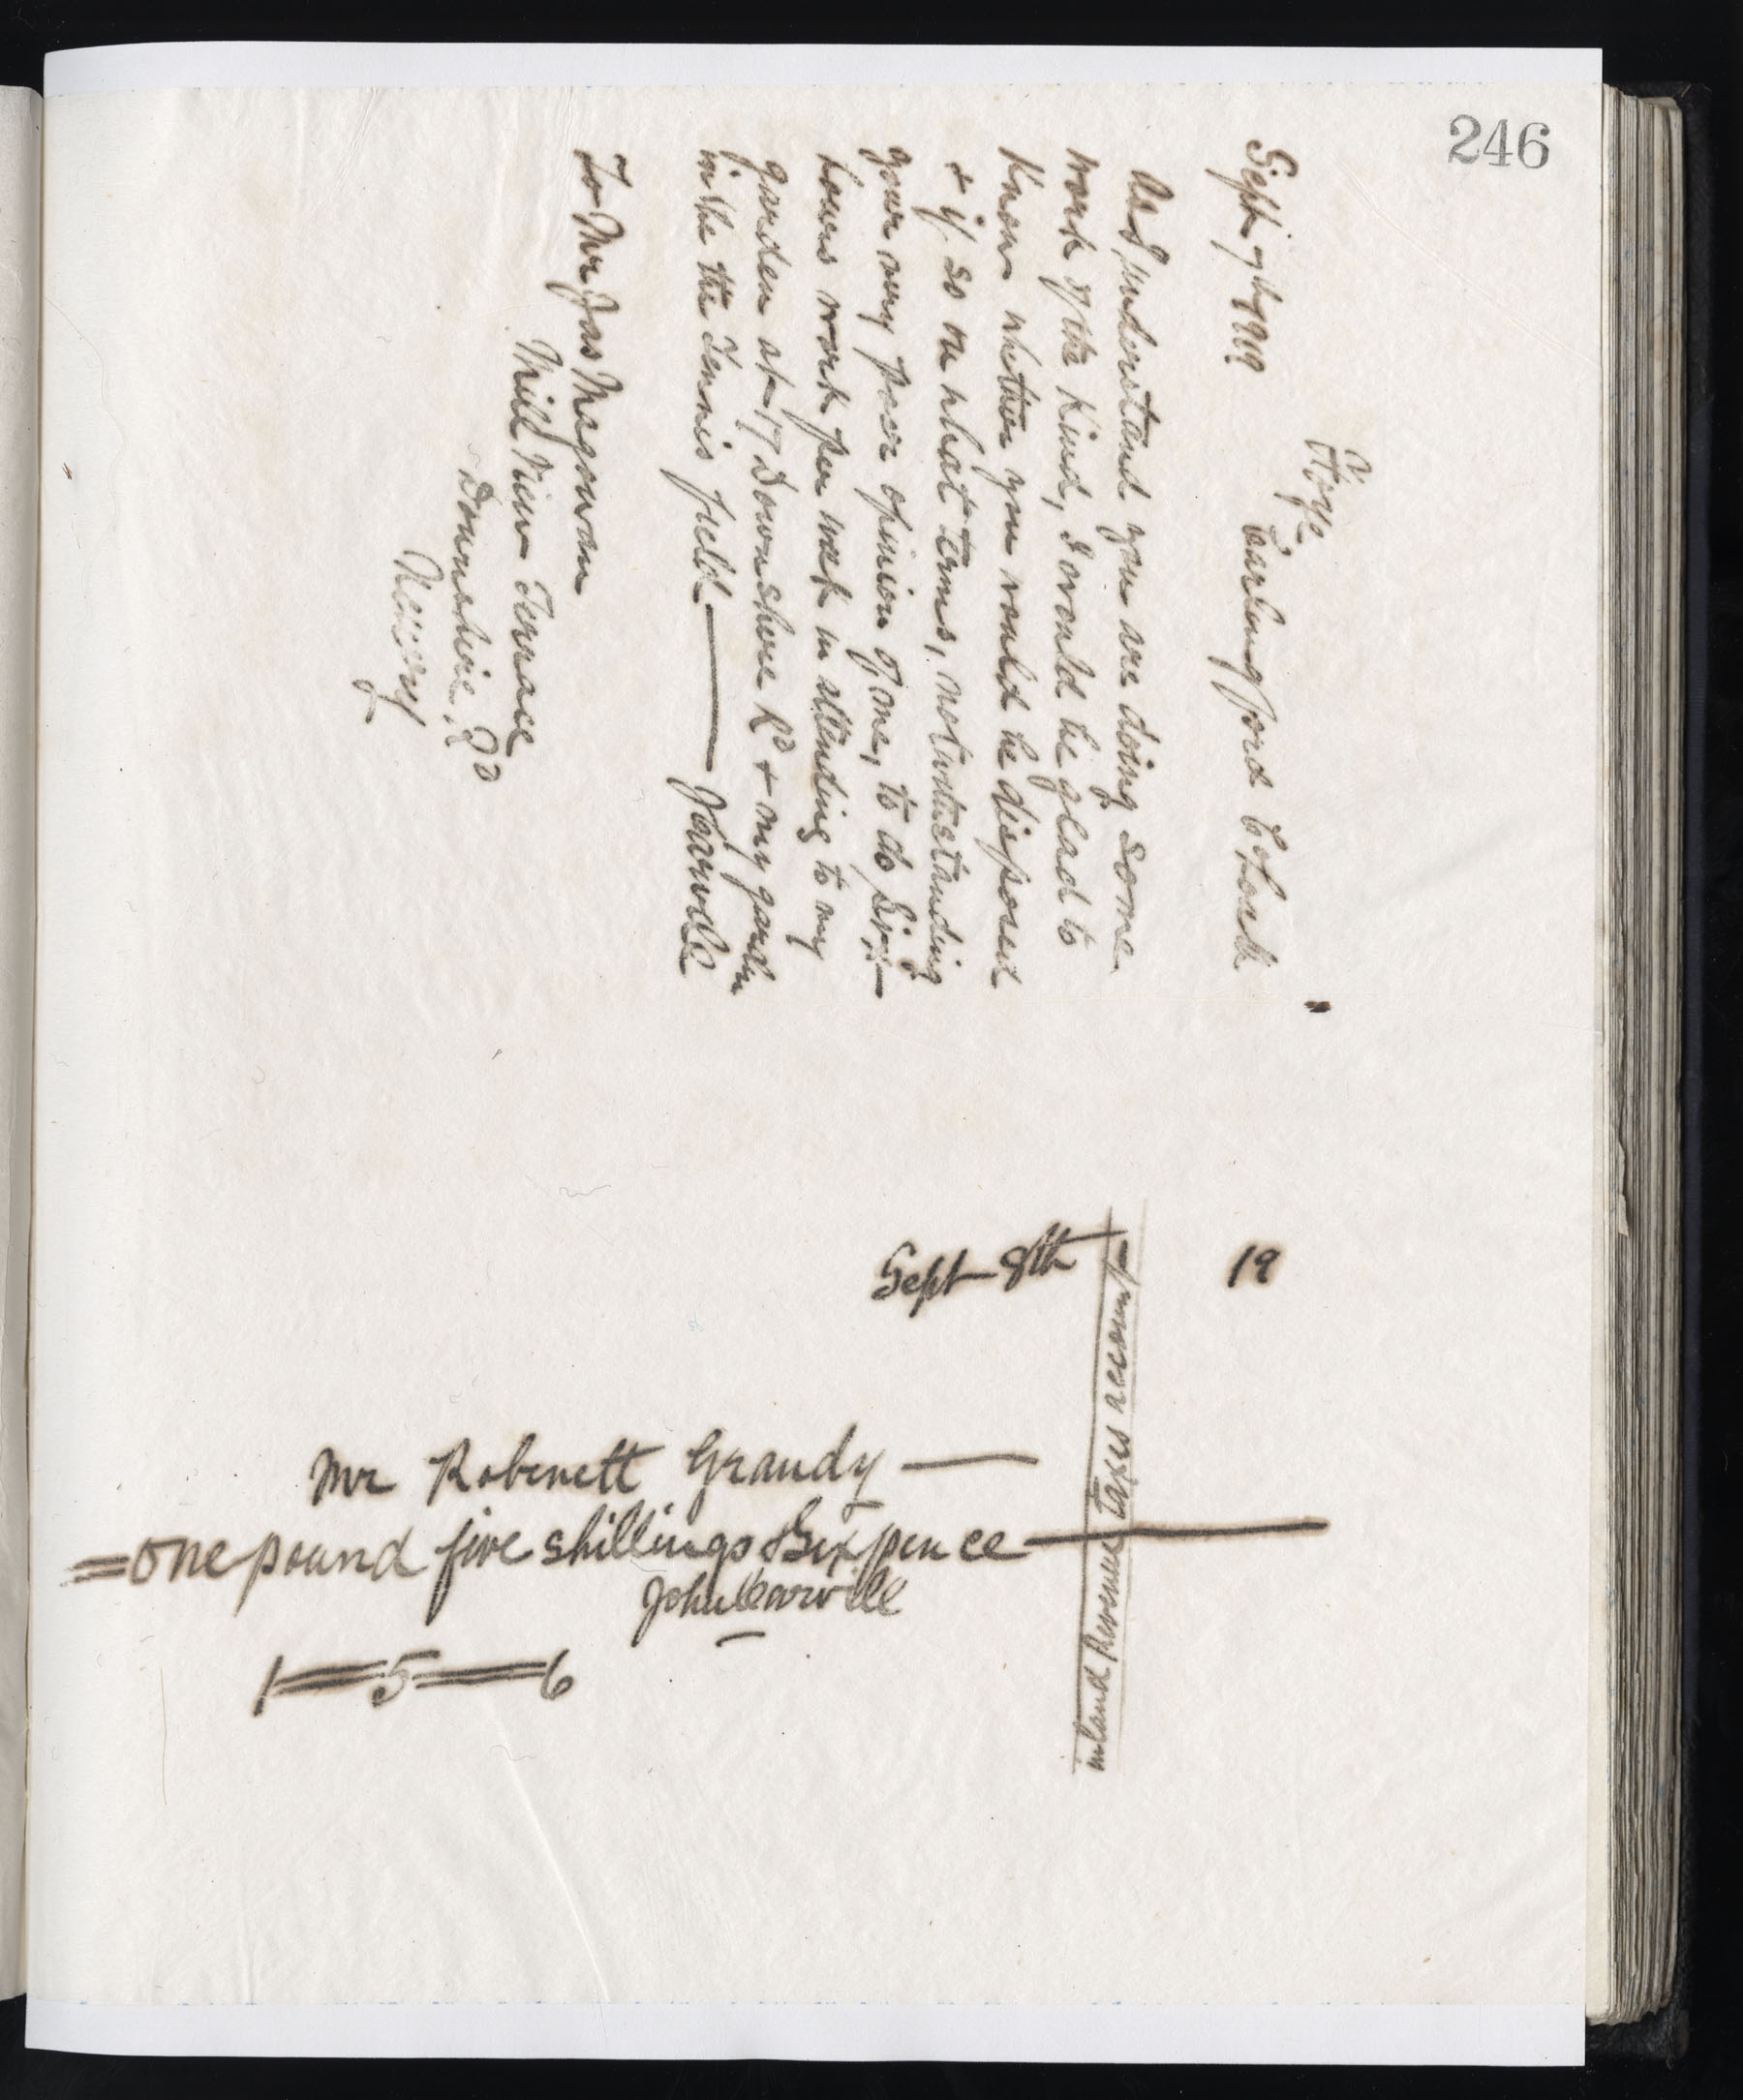 246
Hoye
Sept 7th 1919 Carlingford Co Louth
As I understand you are doing some
work of the kind, I would be glad to
know whether you would be disposed
& if so on what terms, notwithstanding
your very poor opinion of me, to do six
hours work per week in attending to my
garden at 7 Downshire Rd & my garden
in the the Tennis field — JCarvill
To Mr Jas Magowan
Mill View Terrace
Downshire Rd
Newry
Sept 8th 19
Mr Robinett Grandy —
= One pound five shillings & Six pence —
John Carvill
1 = 5 = 6